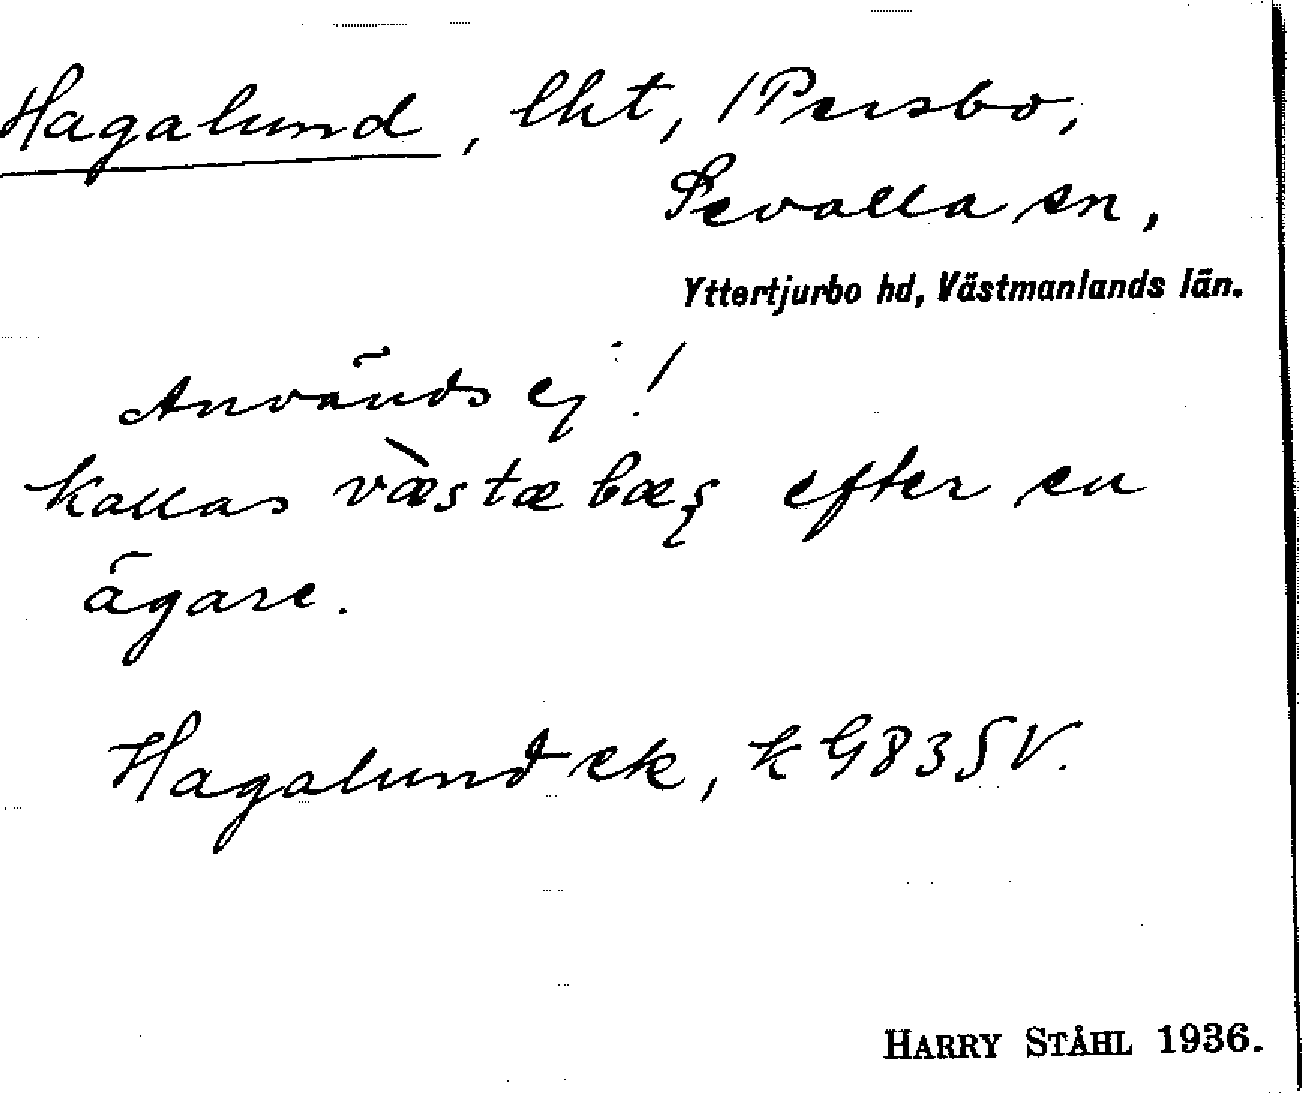 Hagalund, lht, /Persbo,
Sevalla sn,
Yttertjurbo hd, Västmanlands län.
Används ej!
Kallas væ̀stæbæꞔ efter en
ägare.
Hagalund ek, k G835V.
HARRY STÅHL 1936.